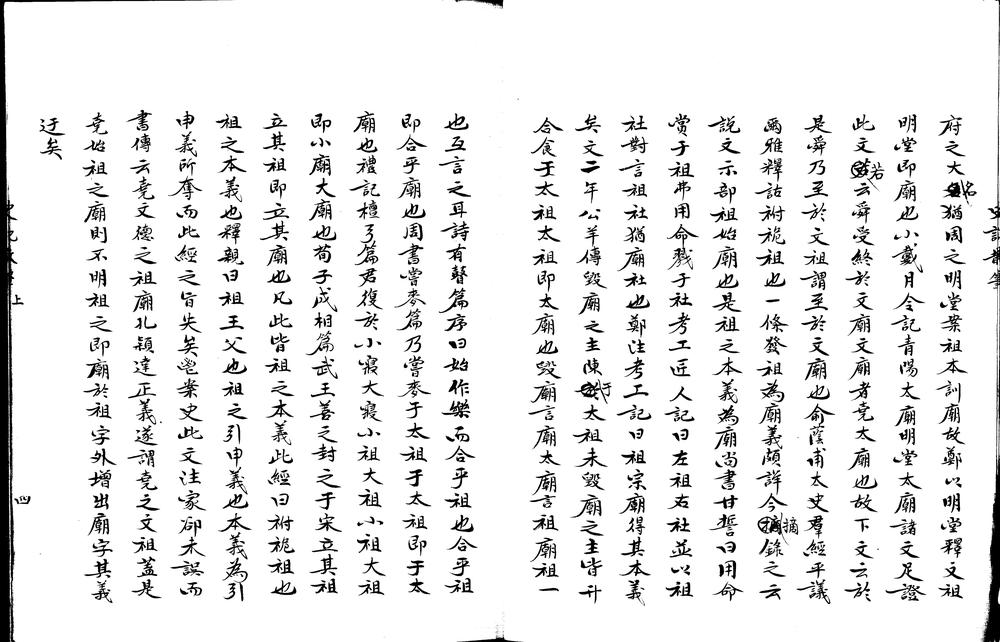 府之大名猶周之明堂案祖本訓廟故鄭以明堂釋文祖
明堂即廟也小戴月令記青陽太廟明堂太廟諸文足證
此文若云舜受終於文廟文廟者堯太廟也故下文云於
是舜乃至於文祖謂至於文廟也俞蔭甫太史羣經平議
爾雅釋詁祔祪祖也一條發祖為廟義頗詳今摘錄之云
說文示部祖始廟也是祖之本義為廟尚書甘誓曰用命
賞于祖弗用命戮于社考工匠人記曰左祖右社並以祖
社對言祖社猶廟社也鄭注考工記曰祖宗廟得其本義
矣文二年公羊傳毀廟之主陳于大祖未毀廟之主皆升
合食于太祖太祖即太廟也毀廟言廟太廟言祖廟祖一
也互言之耳詩有瞽篇序曰始作樂而合乎祖也合乎祖
即合乎廟也周書嘗麥篇乃嘗麥于太祖于太祖即于太
廟也禮記檀弓篇君復於小寢大寢小祖大祖小祖大祖
即小廟大廟也荀子成相篇武王善之封之于宋立其祖
立其祖即立其廟也凡此皆祖之本義此經曰祔祪祖也
祖之本義也釋親曰祖王父也祖之引申義也本義為引
申義所奪而此經之旨失矣鬯案史此文注家卻未誤而
書傳云堯文德之祖廟孔穎達正義遂謂堯之文祖蓋是
堯始祖之廟則不明祖之即廟於祖字外增出廟字其義
迂矣
上
四